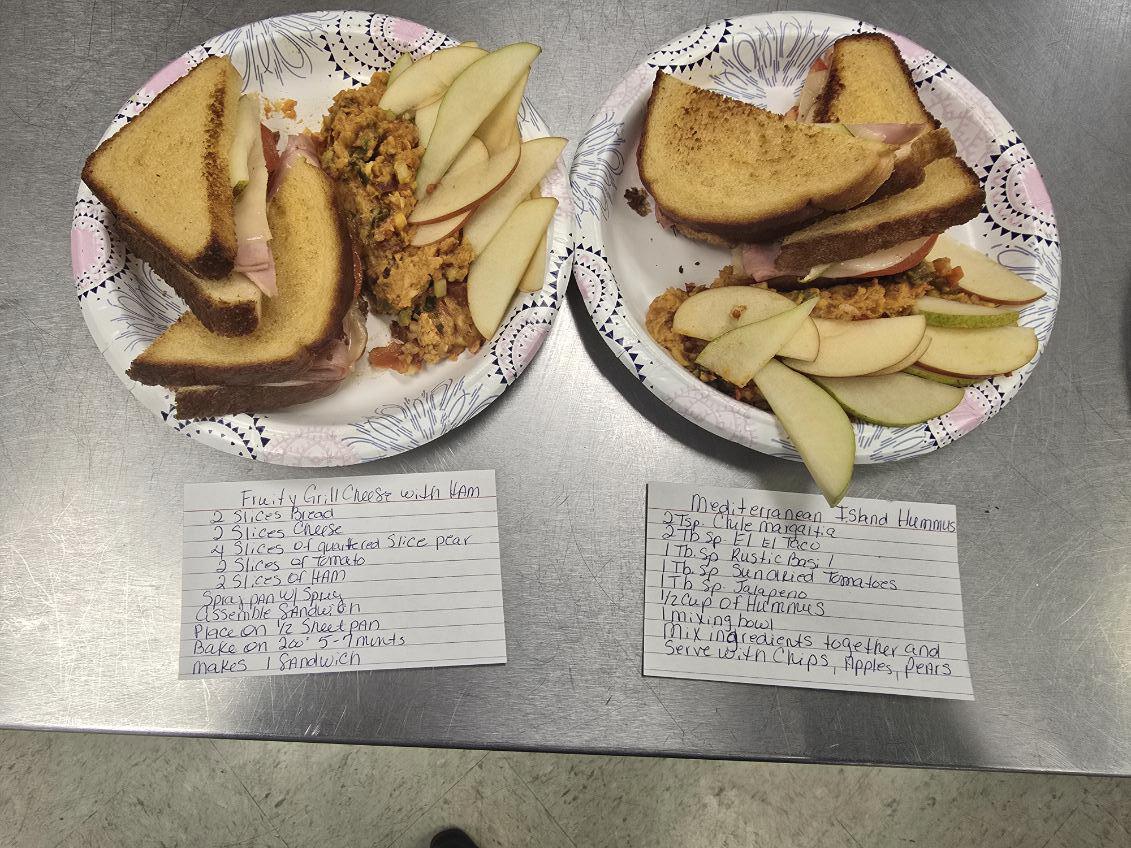 Fruity Grill Cheese with HAM
2 Slices Bread
2 Slices Cheese
4 Slices of quartered Slice pear
2 Slices of Tomato
2 Slices of HAM
Spray pan w/ Spray
Assemble SAndwich
Place on 1/2 Sheet pan
Bake on 200° 5-7 minuts
makes 1 SAndwich
Mediterranean Island Hummus
2 Tsp. Chile margaitia
2 Tb Sp El El Taco
1 Tb. Sp Rustic Basil
1 Tb Sp Sundried Tomatoes
1 Tb Sp. Jalapeno
1/2 Cup of Hummus
1 mixing bowl
Mix ingredients together and
Serve with Chips, Apples, pears